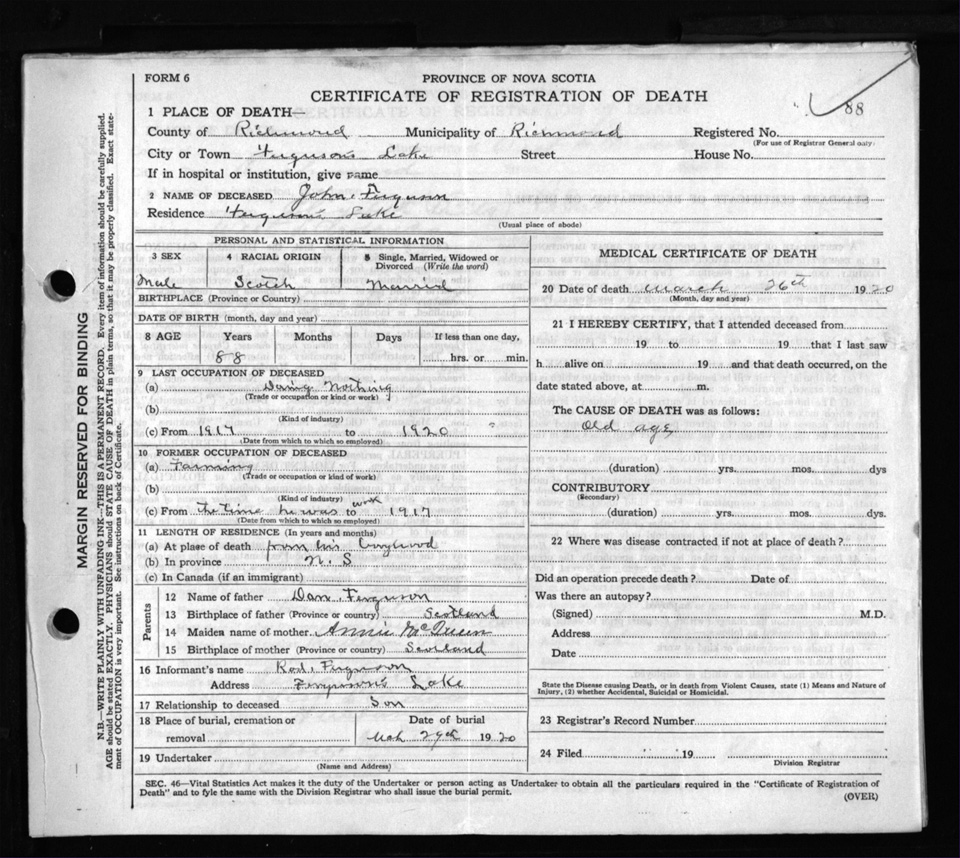 FORM 6
PROVINCE OF NOVA SCOTIA
CERTIFICATE OF REGISTRATION OF DEATH
88
1 PLACE OF DEATH—
County of Richmond Municipality of Richmond Registered No.
(For use of Registrar General only)
City or Town Ferguson's Lake Street House No.
If in hospital or institution, give name
2 NAME OF DECEASED John Ferguson
Residence Ferguson's Lake
(Usual place of abode)
PERSONAL AND STATISTICAL INFORMATION
3 SEX 4 RACIAL ORIGIN 5 Single, Married, Widowed or Divorced (Write the word)
Male Scotch Married
BIRTHPLACE (Province or Country)
DATE OF BIRTH (month, day and year)
8 AGE Years Months Days If less than one day,
88 hrs. or min.
9 LAST OCCUPATION OF DECEASED
(a) Doing Nothing
(Trade or occupation or kind or work)
(b)
(Kind of industry)
(c) From 1917 to 1920
(Date from which to which so employed)
10 FORMER OCCUPATION OF DECEASED
(a) Farming
(Trade or occupation or kind of work)
(b)
(Kind of industry)
(c) From the time he was to work 1917
(Date from which to which so employed)
11 LENGTH OF RESIDENCE (In years and months)
(a) At place of death from his boyhood
(b) In province N. S
(c) In Canada (if an immigrant)
Parents
12 Name of father Dan. Ferguson
13 Birthplace of father (Province or country) Scotland
14 Maiden name of mother Annie McQueen
15 Birthplace of mother (Province or country) Scotland
16 Informant's name Rod. Ferguson
Address Ferguson's Lake
17 Relationship to deceased Son
18 Place of burial, cremation or removal
Date of burial
Mch 29th 1920
19 Undertaker
(Name and Address)
MEDICAL CERTIFICATE OF DEATH
20 Date of death March 26th 1920
(Month, day and year)
21 I HEREBY CERTIFY, that I attended deceased from
19 to 19 that I last saw
h alive on 19 and that death occurred, on the
date stated above, at m.
The CAUSE OF DEATH was as follows:
Old age
(duration) yrs. mos. dys
CONTRIBUTORY
(Secondary)
(duration) yrs. mos. dys.
22 Where was disease contracted if not at place of death?
Did an operation precede death? Date of
Was there an autopsy?
(Signed) M.D.
Address
Date
State the Disease causing Death, or in death from Violent Causes, state (1) Means and Nature of
Injury, (2) whether Accidental, Suicidal or Homicidal.
23 Registrar's Record Number
24 Filed 19
Division Registrar
SEC. 46—Vital Statistics Act makes it the duty of the Undertaker or person acting as Undertaker to obtain all the particulars required in the "Certificate of Registration of
Death" and to fyle the same with the Division Registrar who shall issue the burial permit.
(OVER)
MARGIN RESERVED FOR BINDING
N.B.—WRITE PLAINLY WITH UNFADING INK—THIS IS A PERMANENT RECORD. Every item of information should be carefully supplied.
AGE should be stated EXACTLY. PHYSICIANS should STATE CAUSE OF DEATH in plain terms, so that it may be properly classified. Exact state-
ment of OCCUPATION is very important. See instructions on back of Certificate.